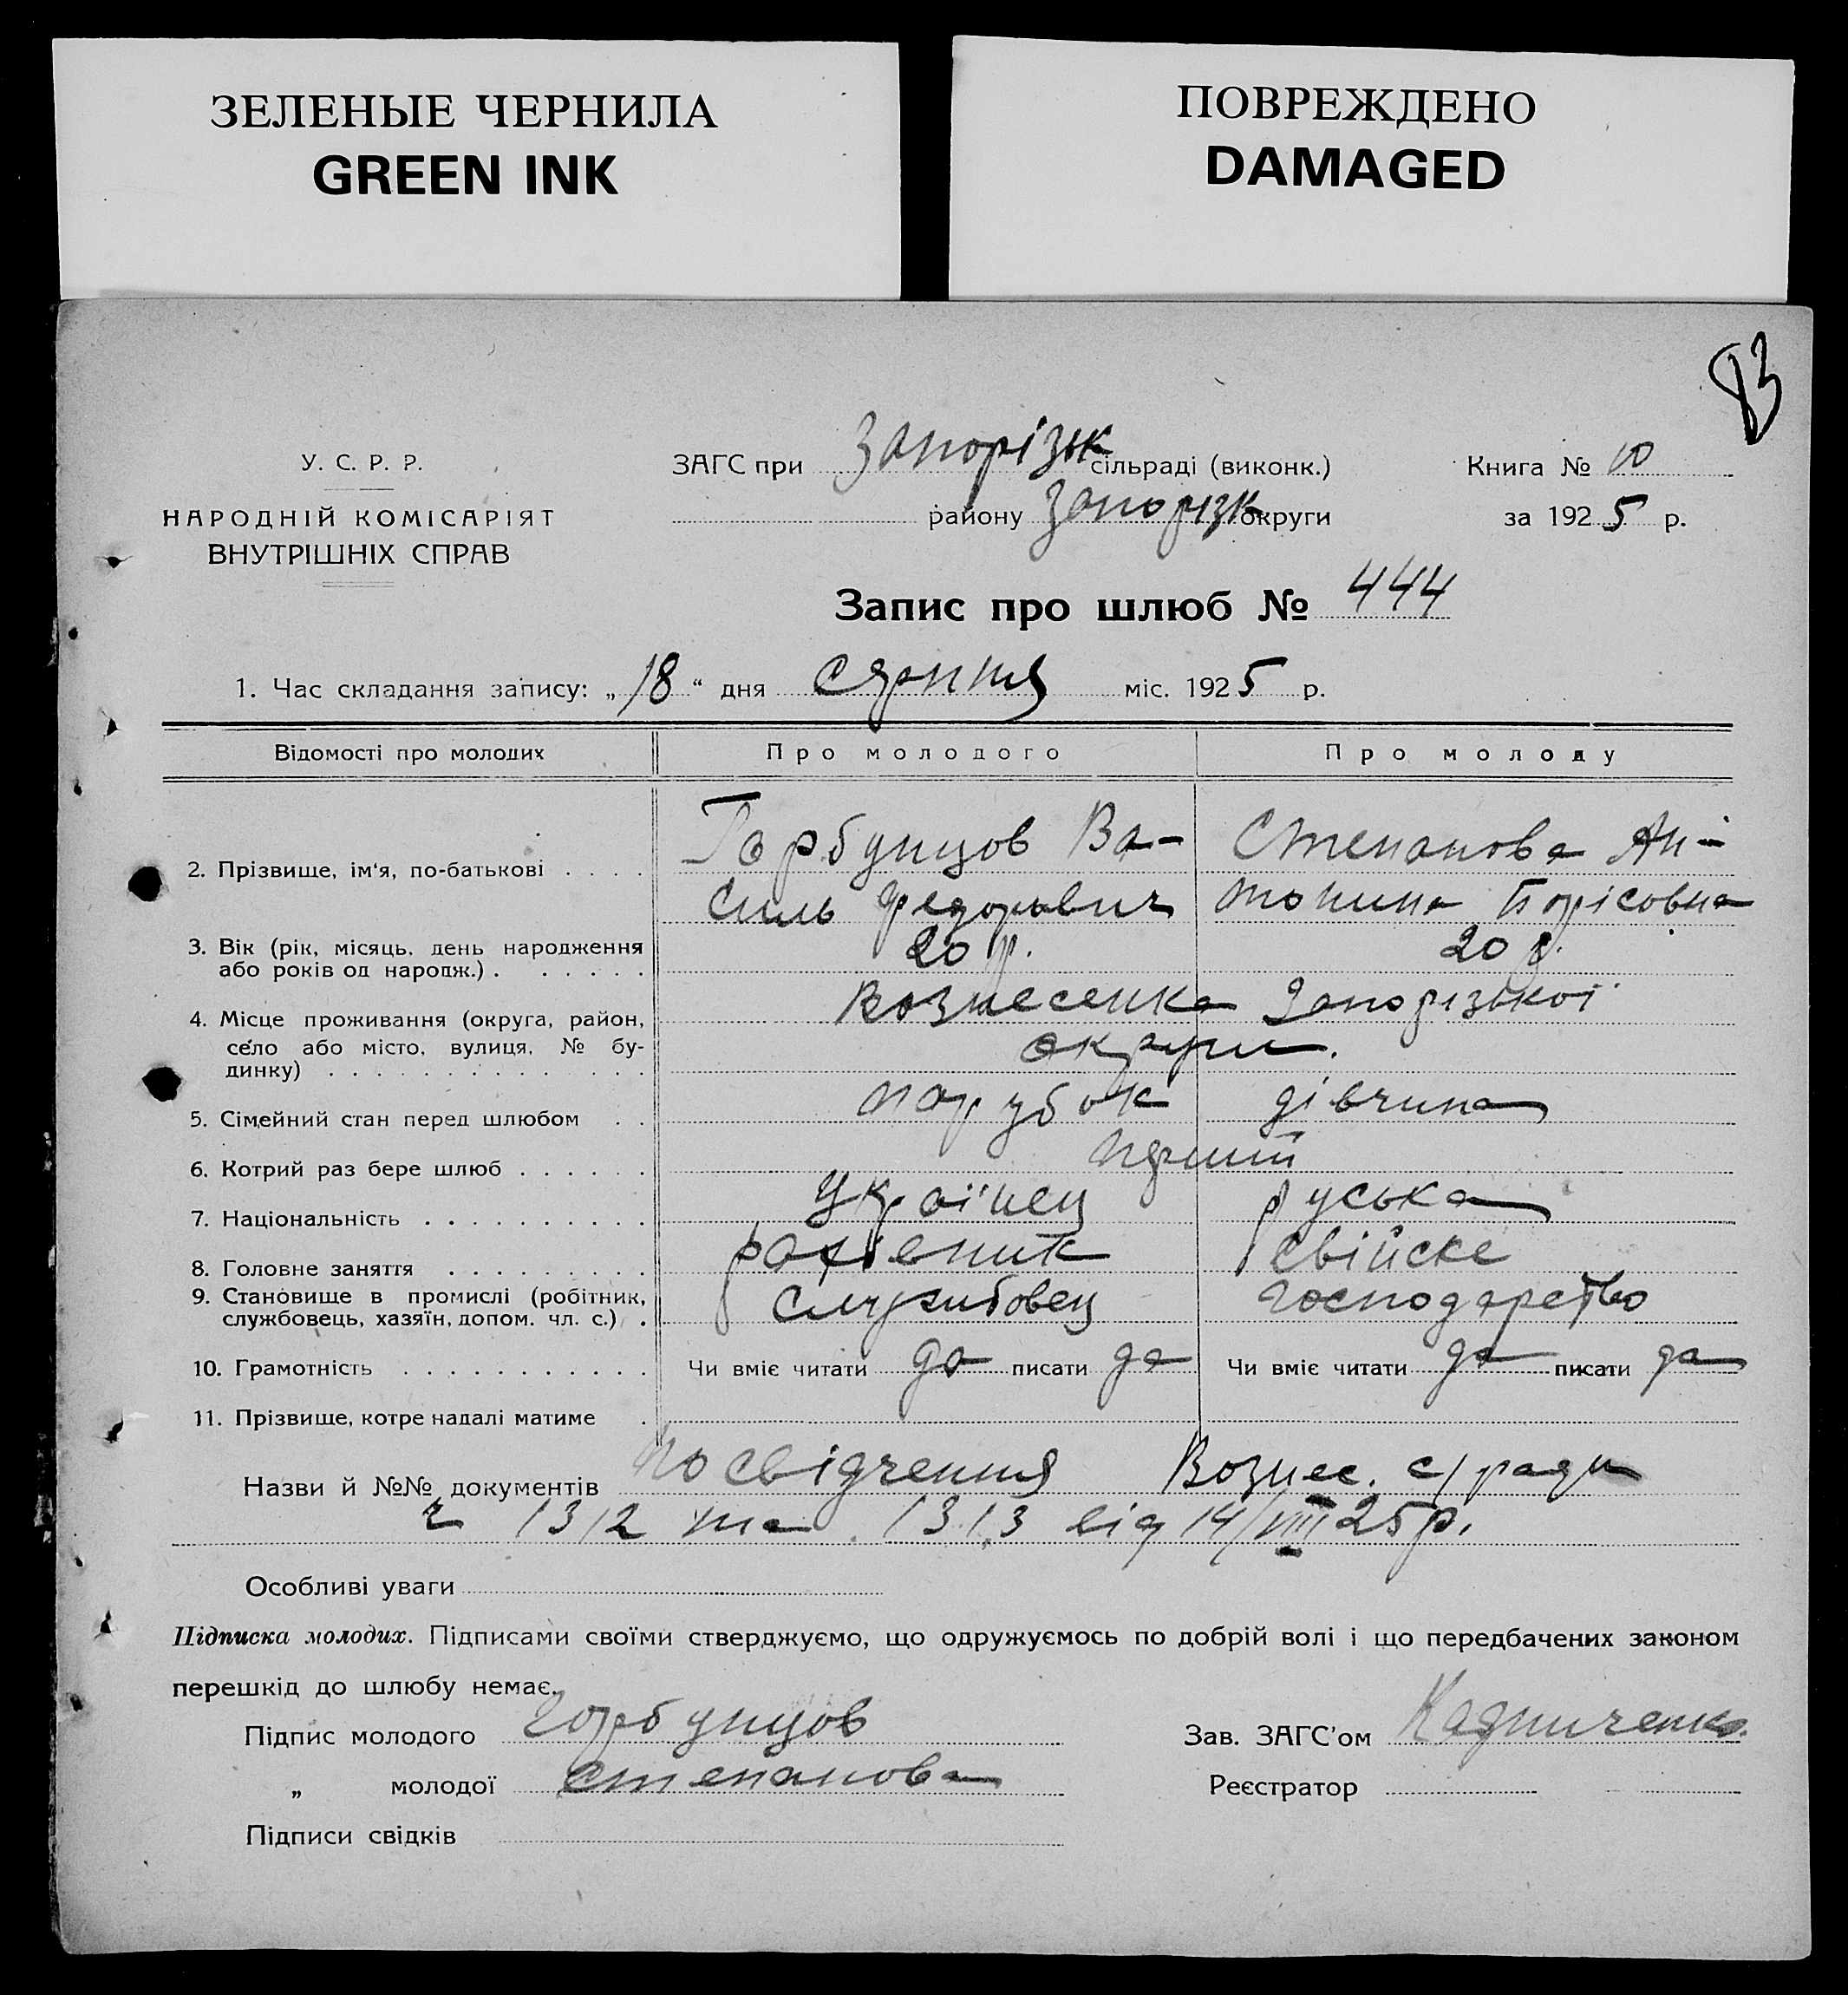 ЗЕЛЕНЫЕ ЧЕРНИЛА
GREEN INK
ПОВРЕЖДЕНО
DAMAGED
83
У. С. Р. Р.
НАРОДНІЙ КОМІСАРІЯТ
ВНУТРІШНІХ СПРАВ
ЗАГС при Запорізьк сільраді (виконк.)
району Запорізк округи
Книга № 10
за 1925 р.
Запис про шлюб № 444
1. Час складання запису: „18“ дня серпня міс. 1925 р.
Відомості про молодих Про молодого Про молоду
2. Прізвище, ім'я, по-батькові . . . . Горбунцов Ва- Степанова Ан-
силь Федорович тонина Борісовна
3. Вік (рік, місяць, день народження 20 р. 20 р.
або років од народж.) . . . . . .
4. Місце проживання (округа, район, Вознесенка Запорізької
село або місто, вулиця, № бу- округи.
динку) . . . . . . . . . . . . .
5. Сімейний стан перед шлюбом . . парубок дівчина
6. Котрий раз бере шлюб . . . . . . перший
7. Національність . . . . . . . . . . Українец руська
8. Головне заняття . . . . . . . . . свійске
9. Становище в промислі (робітник, службовец господарство
службовець, хазяїн, допом. чл. с.) .
10. Грамотність . . . . . . . . . . . Чи вміє читати да писати да Чи вміє читати да писати да
11. Прізвище, котре надалі матиме .
Назви й №№ документів посвідчення Вознес. с/ради
ч 1312 та 1313 від 14/VIII 25 р.
Особливі уваги
Підписка молодих. Підписами своїми стверджуємо, що одружуємось по добрій волі і що передбачених законом
перешкід до шлюбу немає.
Підпис молодого Горбунцов
„ молодої Степанова
Підписи свідків
Зав. ЗАГС'ом
Реєстратор